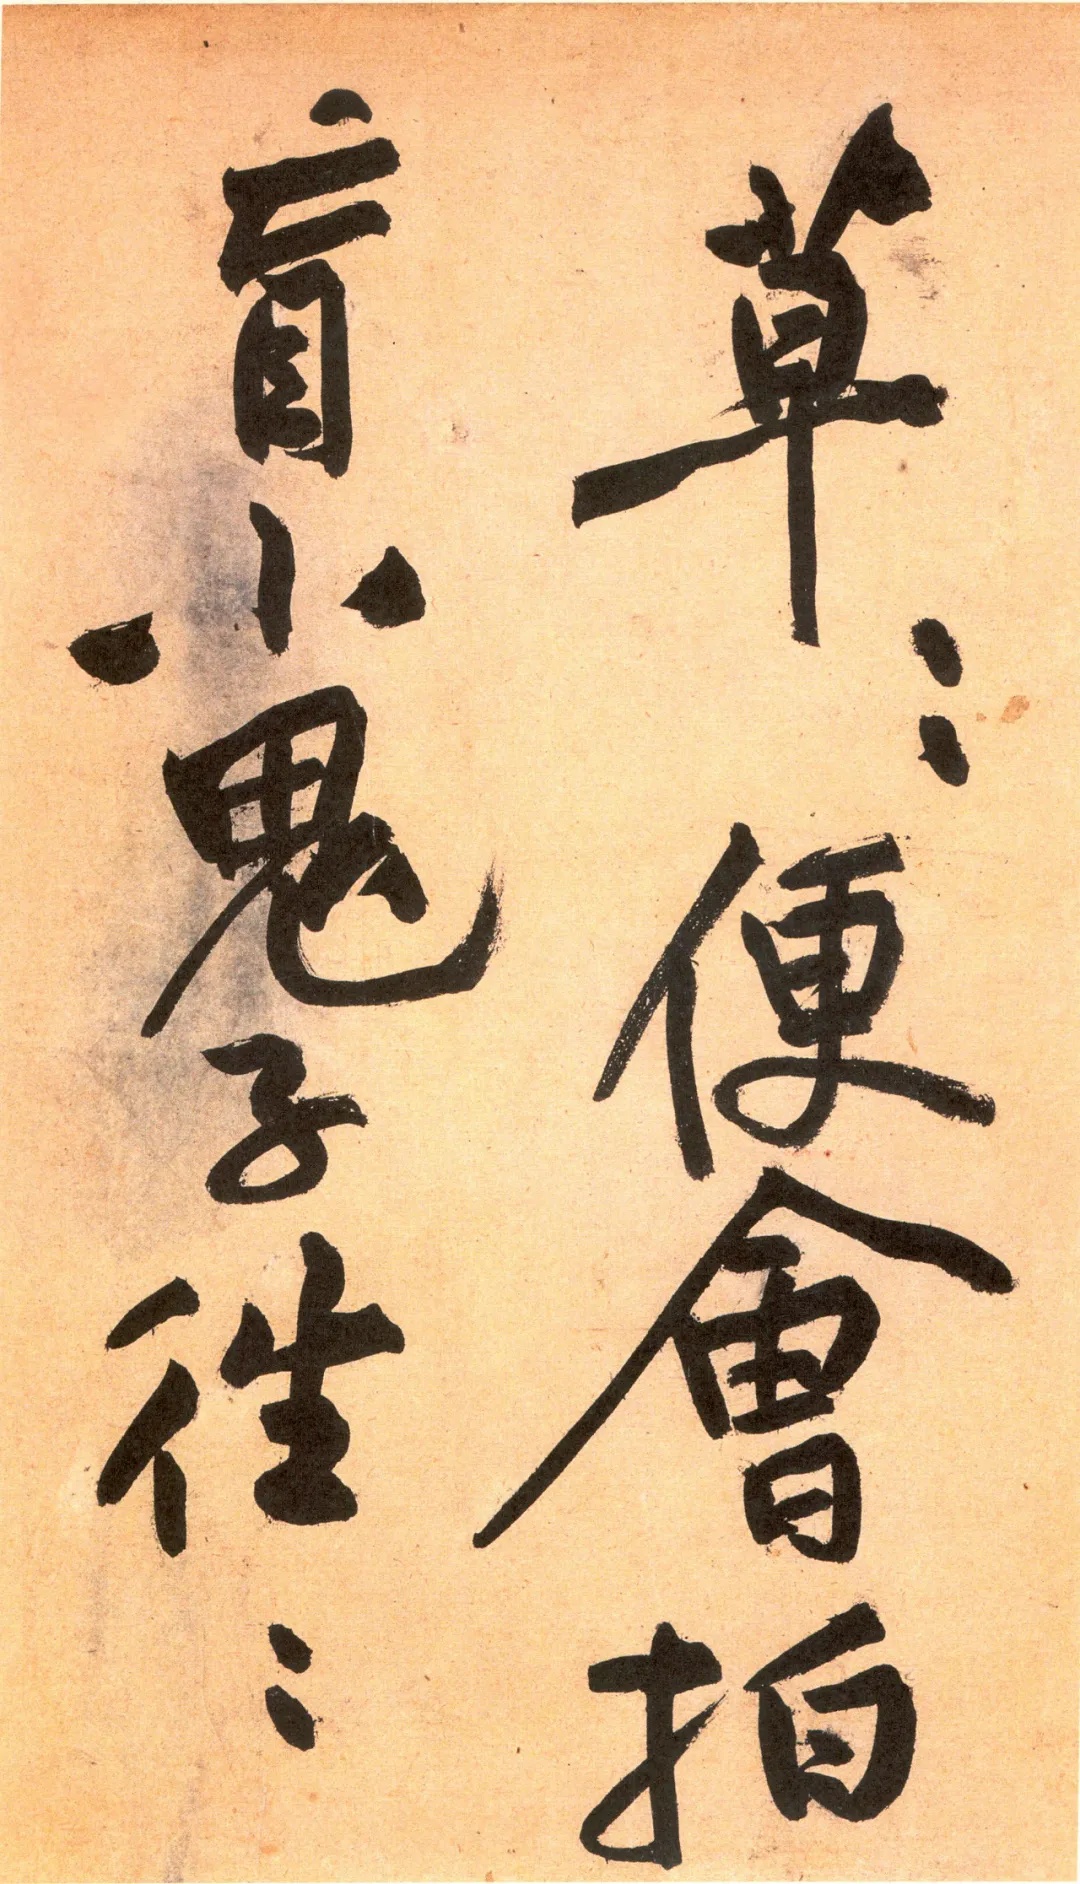 草〻便會拍
盲小鬼子往〻